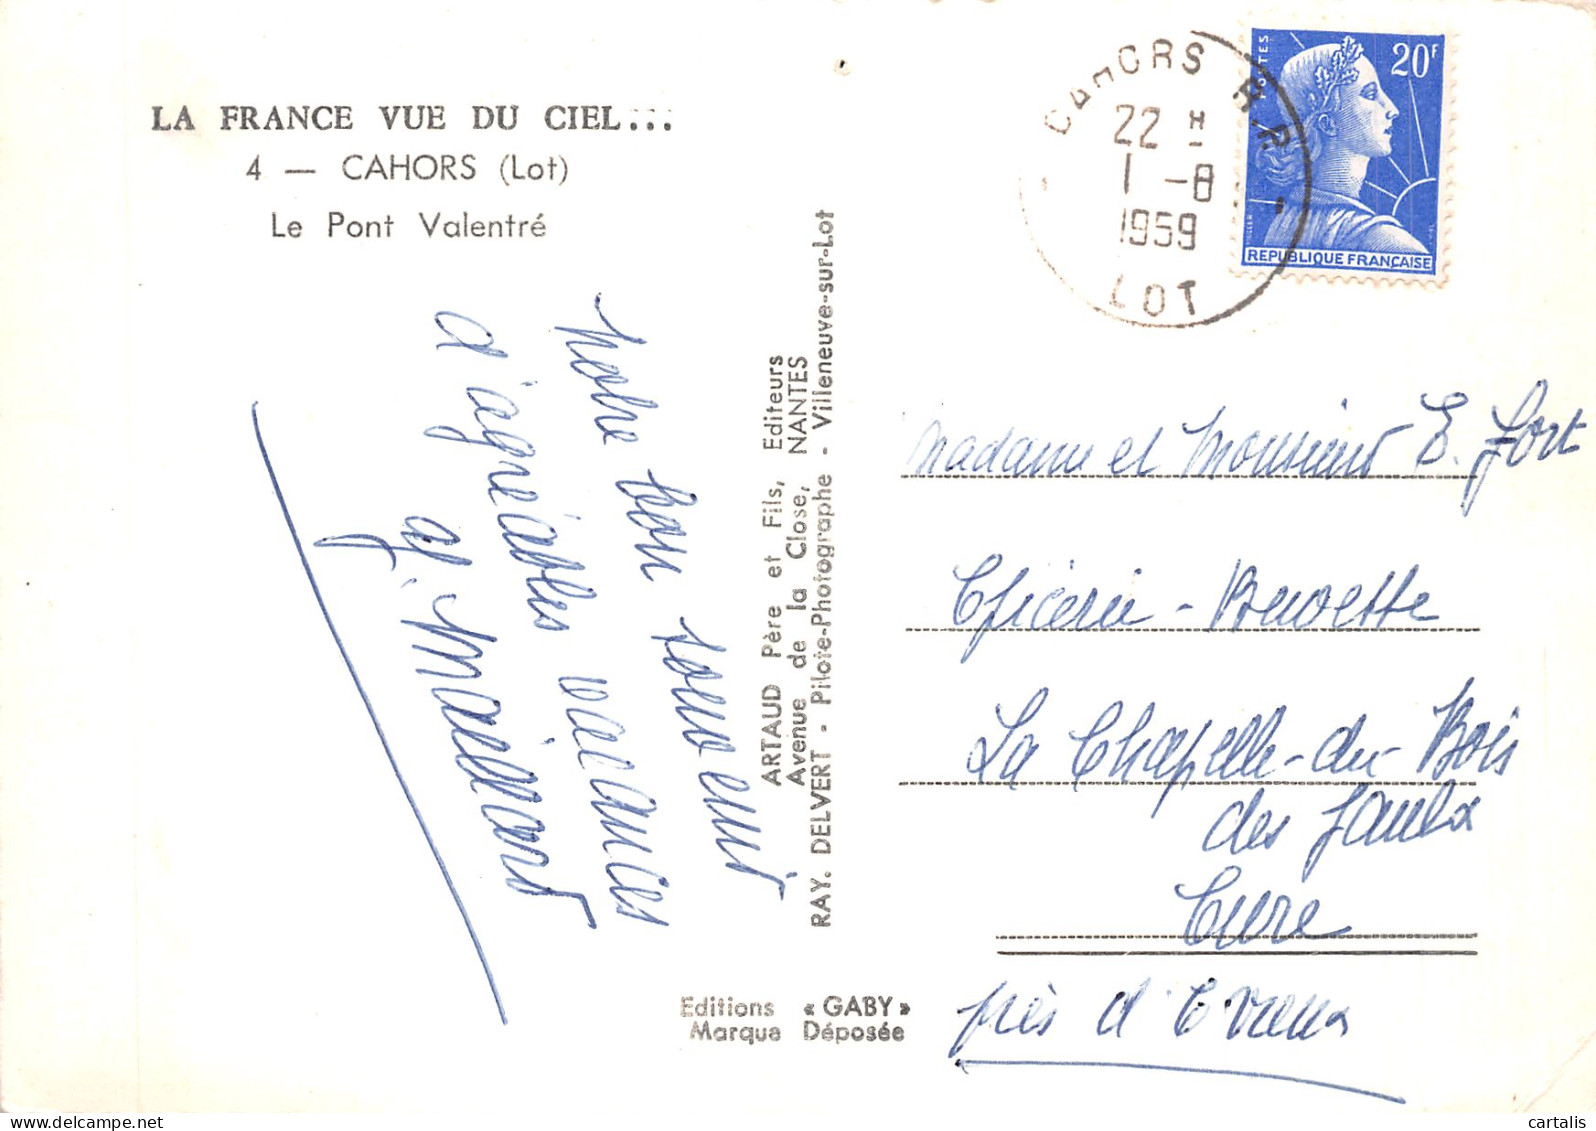 LA FRANCE VUE DU CIEL...
4 — CAHORS (Lot)
Le Pont Valentré
notre bon souvenir
d'agréables vacances
Maillard
ARTAUD Père et Fils, Editeurs
Avenue de la Close, NANTES
RAY. DELVERT - Pilote-Photographe - Villeneuve-sur-Lot
Editions « GABY »
Marque Déposée
CAHORS R.P.
22 H
1 -8
1959
LOT
POSTES
20F
REPUBLIQUE FRANÇAISE
Madame et Monsieur E. Fort
Epicerie - Buvette
La Chapelle-du-Bois
des Faulx
Eure
près d'Evreux
cartalis